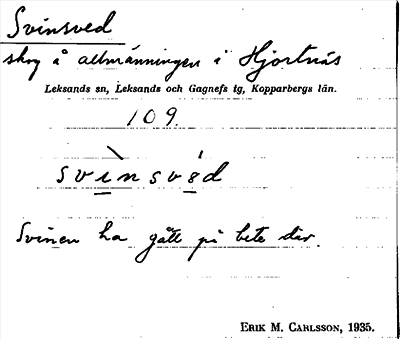 Svinsved
skog å allmänningen i Hjortnäs
Leksands sn, Leksands och Gagnefs tg, Kopparbergs län.
109.
svìnsvé̱d
Svinen ha gått på bete där.
ERIK M. CARLSSON, 1935.